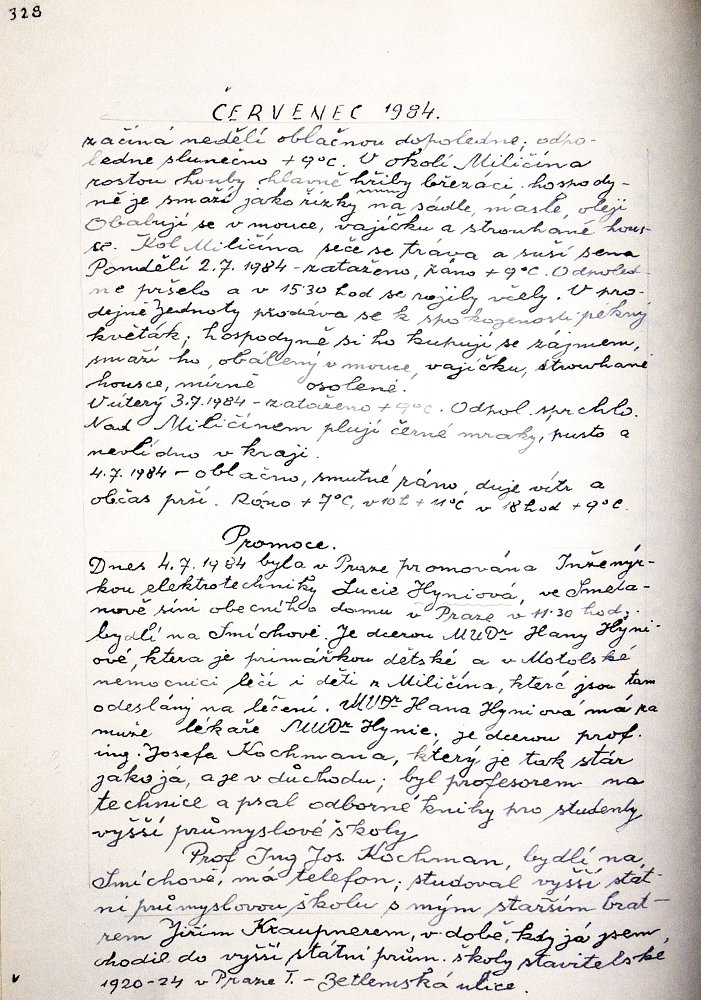 328
ČERVENEC 1984.
začíná nedělí oblačnou dopoledne; odpo-
ledne slunečno +9°C. V okolí Miličína
rostou houby hlavně hřiby březáci. hospody-
ně je smaží jako řízky na sádle, másle, oleji
Obalují se v mouce, vajíčku a strouhané hous-
ce. Kol Miličína seče se tráva a suší sena
Pondělí 2.7. 1984 - zataženo, ráno +9°C. Odpoled-
ne pršelo a v 15·30 hod se rojily včely. V pro-
dejně Jednoty prodává se k spokojenosti pěkný
květák; hospodyně si ho kupují se zájmem,
smaží ho, obálený v mouce, vajíčku, strouhané
housce, mírně osolené.
V úterý 3.7.1984 - zataženo +9°C. Odpol. sprchlo.
Nad Miličínem plují černé mraky, pusto a
nevlídno v kraji.
4.7. 1984 - oblačno, smutné ráno, duje vítr a
občas prší. Ráno +7°C, v 10h +11°C v 18hod +9°C.
Promoce.
Dnes 4.7.1984 byla v Praze promována Inženýr-
kou elektrotechniky Lucie Hyniová, ve Smeta-
nově síni obecního domu v Praze v 11·30 hod;
bydlí na Smíchově. Je dcerou MUDr Hany Hyni-
ové, ktera je primářkou dětské a v Motolské
nemocnici léčí i děti z Miličína, které jsou tam
odeslány na léčení. MUDr Hana Hyniová má za
muže lékaře MUDr Hynie; je dcerou prof.
ing. Josefa Kochmana, který je tak stár
jako já, a je v důchodu; byl profesorem na
technice a psal odborné knihy pro studenty
vyšší průmyslové školy
Prof Ing Jos. Kochman, bydlí na
Smíchově, má telefon; studoval vyšší stát-
ní průmyslovou školu s mým starším brat-
rem Jiřím Kraupnerem, v době, kdy já jsem
chodil do vyšší státní prům. školy stavitelské,
1920-24 v Praze I. - Betlemská ulice.